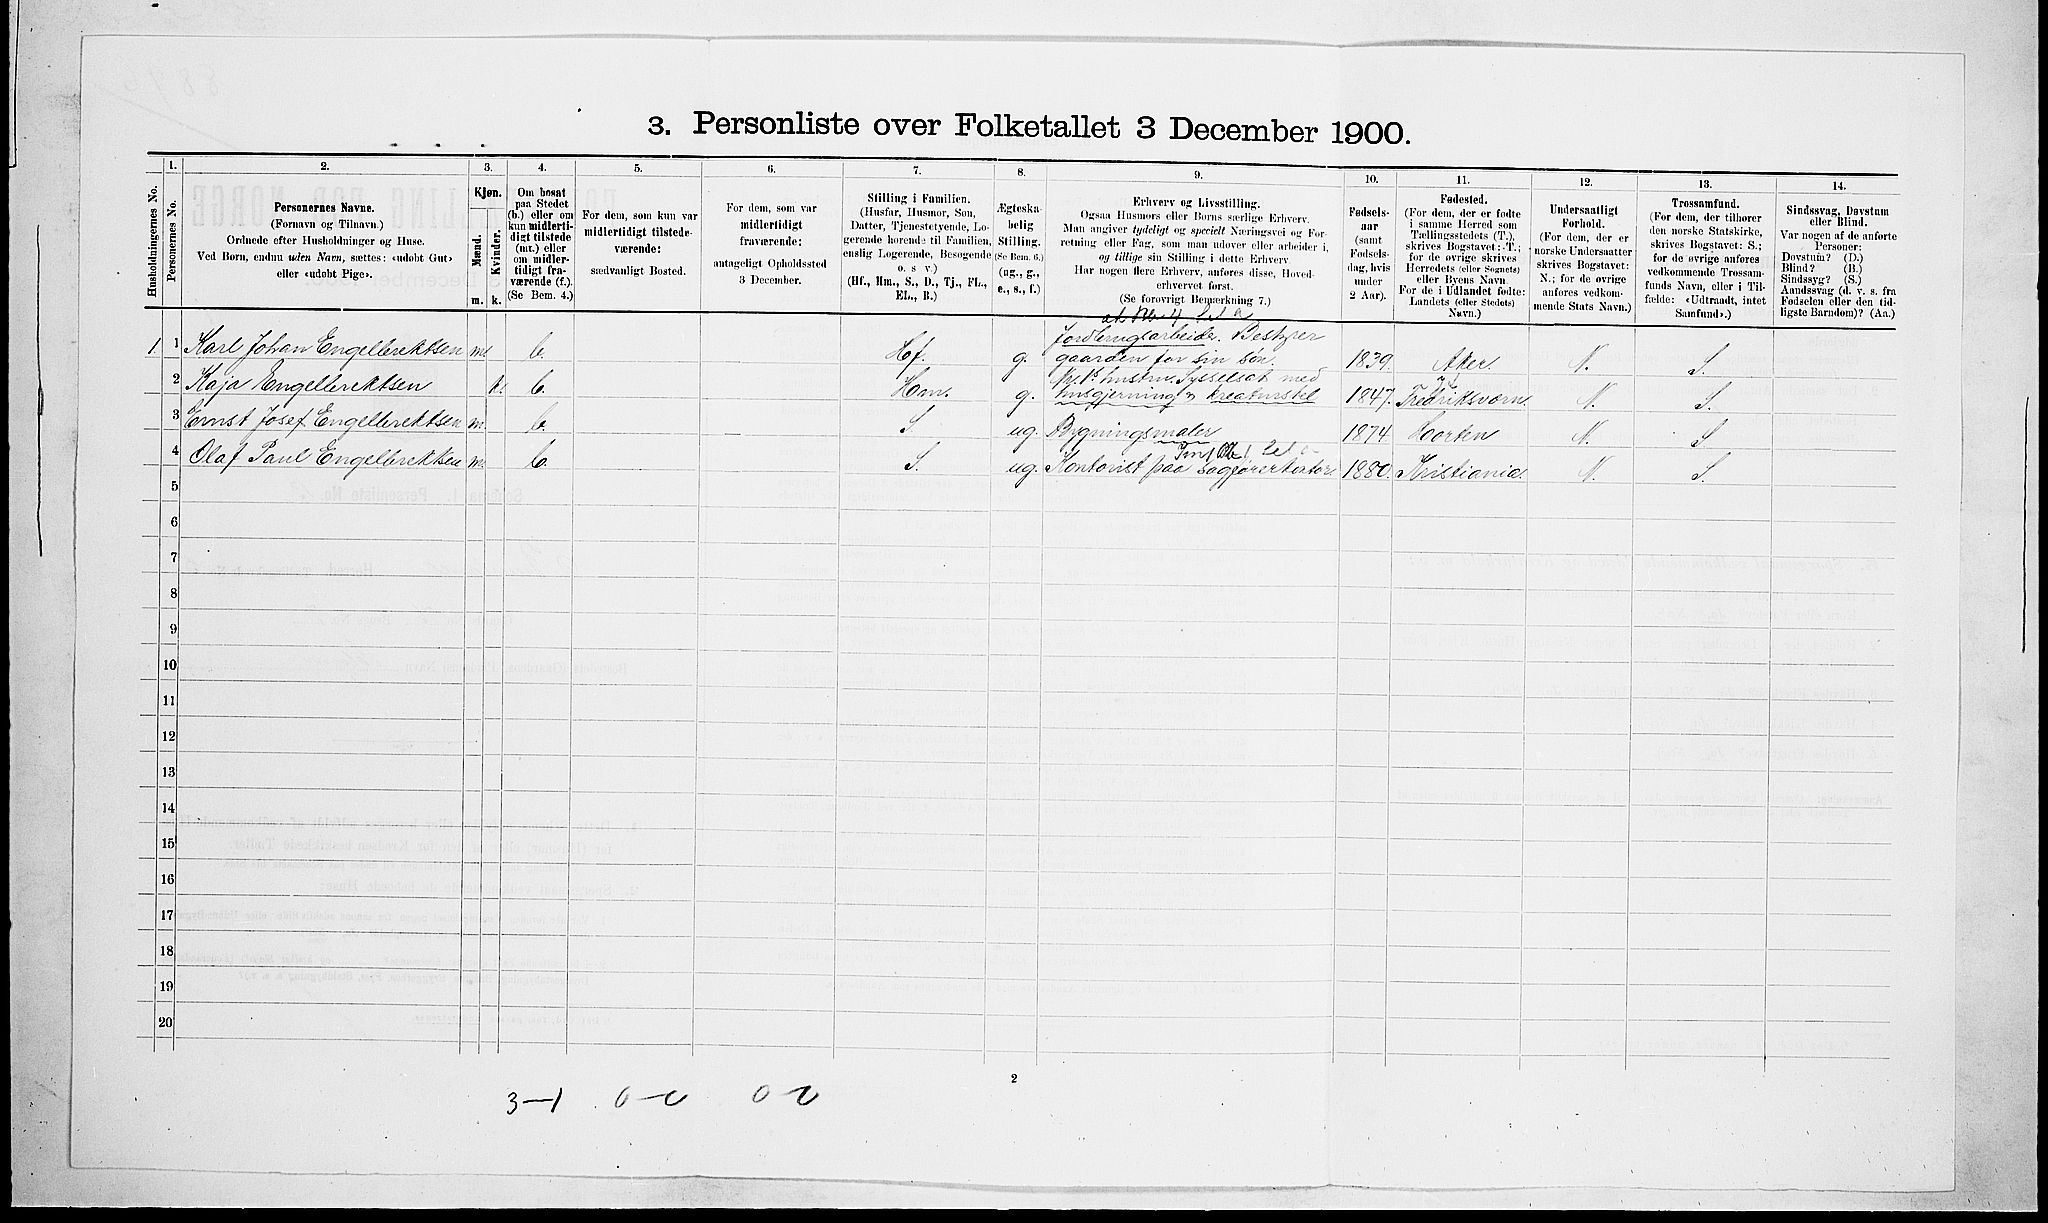 3. Personliste over Folketallet 3 December 1900.
1. 2. 3. 4. 5. 6. 7. 8. 9. 10. 11. 12. 13. 14.
Husholdningernes No.
Personernes No.
Personernes Navne.
(Fornavn og Tilnavn.)
Ordnede efter Husholdninger og Huse.
Ved Børn, endnu uden Navn, sættes: «udøbt Gut»
eller «udøbt Pige».
Kjøn.
Mænd.
Kvinder.
m. k.
Om bosat
paa Stedet
(b.) eller om
kun midlerti-
digt tilstede
(mt.) eller
om midler-
tidigt fra-
værende (f.).
(Se Bem. 4.)
For dem, som kun var
midlertidigt tilstede-
værende:
sædvanligt Bosted.
For dem, som var
midlertidigt
fraværende:
antageligt Opholdssted
3 December.
Stilling i Familien.
(Husfar, Husmor, Søn,
Datter, Tjenestetyende, Lo-
gerende hørende til Familien,
enslig Logerende, Besøgende
o. s v.)
(Hf., Hm., S., D., Tj., FL.,
EL., B.)
Ægteska-
belig
Stilling.
(Se Bem. 6.)
(ug., g.,
e., s., f.)
Erhverv og Livsstilling.
Ogsaa Husmors eller Børns særlige Erhverv.
Man angiver tydeligt og specielt Næringsvei og For-
retning eller Fag, som man udøver eller arbeider i,
og tillige sin Stilling i dette Erhverv.
Har nogen flere Erhverv, anføres disse, Hoved-
erhvervet først.
(Se forøvrigt Bemærkning 7.)
Fødsels-
aar
(samt
Fødsels-
dag, hvis
under
2 Aar).
Fødested.
(For dem, der er fødte
i samme Herred som
Tællingsstedets (T.),
skrives Bogstavet: T.;
for de øvrige skrives
Herredets (eller Sognets)
eller Byens Navn.
For de i Udlandet fødte:
Landets (eller Stedets)
Navn.)
Undersaatligt
Forhold.
(For dem, der er
norske Undersaatter
skrives Bogstavet:
N.; for de øvrige
anføres vedkom-
mende Stats Navn.)
Trossamfund.
(For dem, der tilhører
den norske Statskirke,
skrives Bogstavet: S.;
for de øvrige anføres
vedkommende Trossam-
funds Navn, eller i Til-
fælde: «Udtraadt, intet
Samfund».)
Sindssvag, Døvstum
eller Blind.
Var nogen af de anførte
Personer:
Døvstum? (D.)
Blind? (B.)
Sindssyg? (S.)
Aandssvag (d. v. s. fra
Fødselen eller den tid-
ligste Barndom)? (Aa.)
1. 1 Karl Johan Engelbrektsen m. b. Hf. g. Jordbrugsarbeider. Bestyrer
gaarden for sin søn. 1839. Aker. N. S.
2 Kaja Engelbrektsen k. b. Hm. g. No. 1s hustru. Sysselsat med
husgjerning & kreaturstel 1847. Fredriksværn. N. S.
3 Ernst Josef Engelbrektsen m. b. S. ug. Bygningsmaler 1874. Horten N. S.
4 Olaf Paul Engelbrektsen m. b. S. ug. Kontorist paa sagførerkontor. 1880. Kristiania. N. S.
5
6
7
8
9
10
11
12
13
14
15
16
17
18
19
20
2
3—1 0—0 0 0